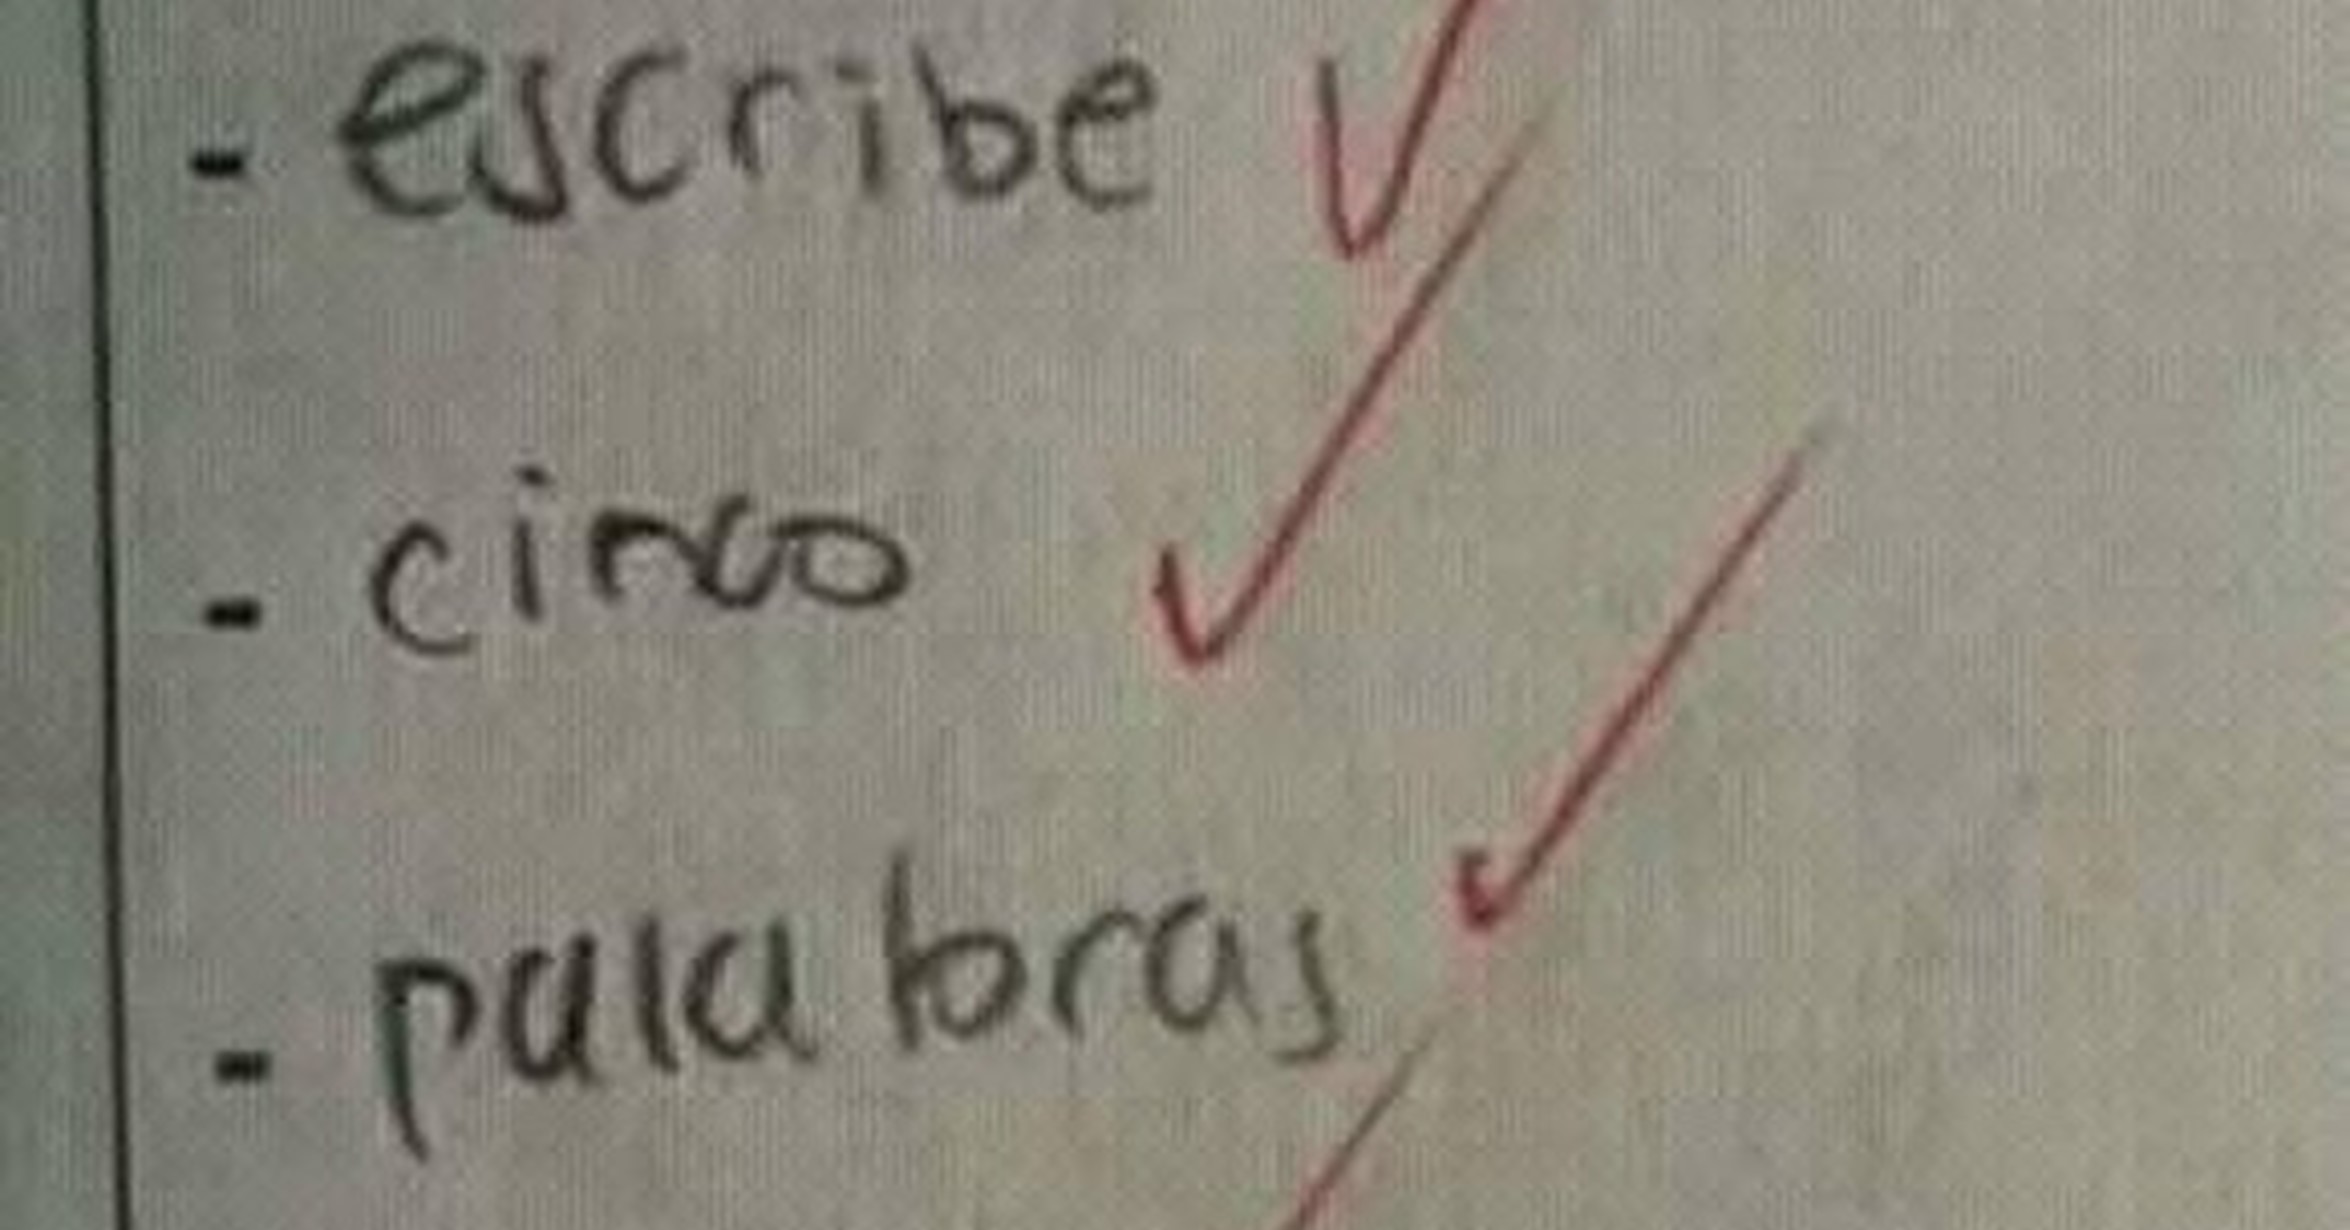 - escribe
- cinco
- palabras